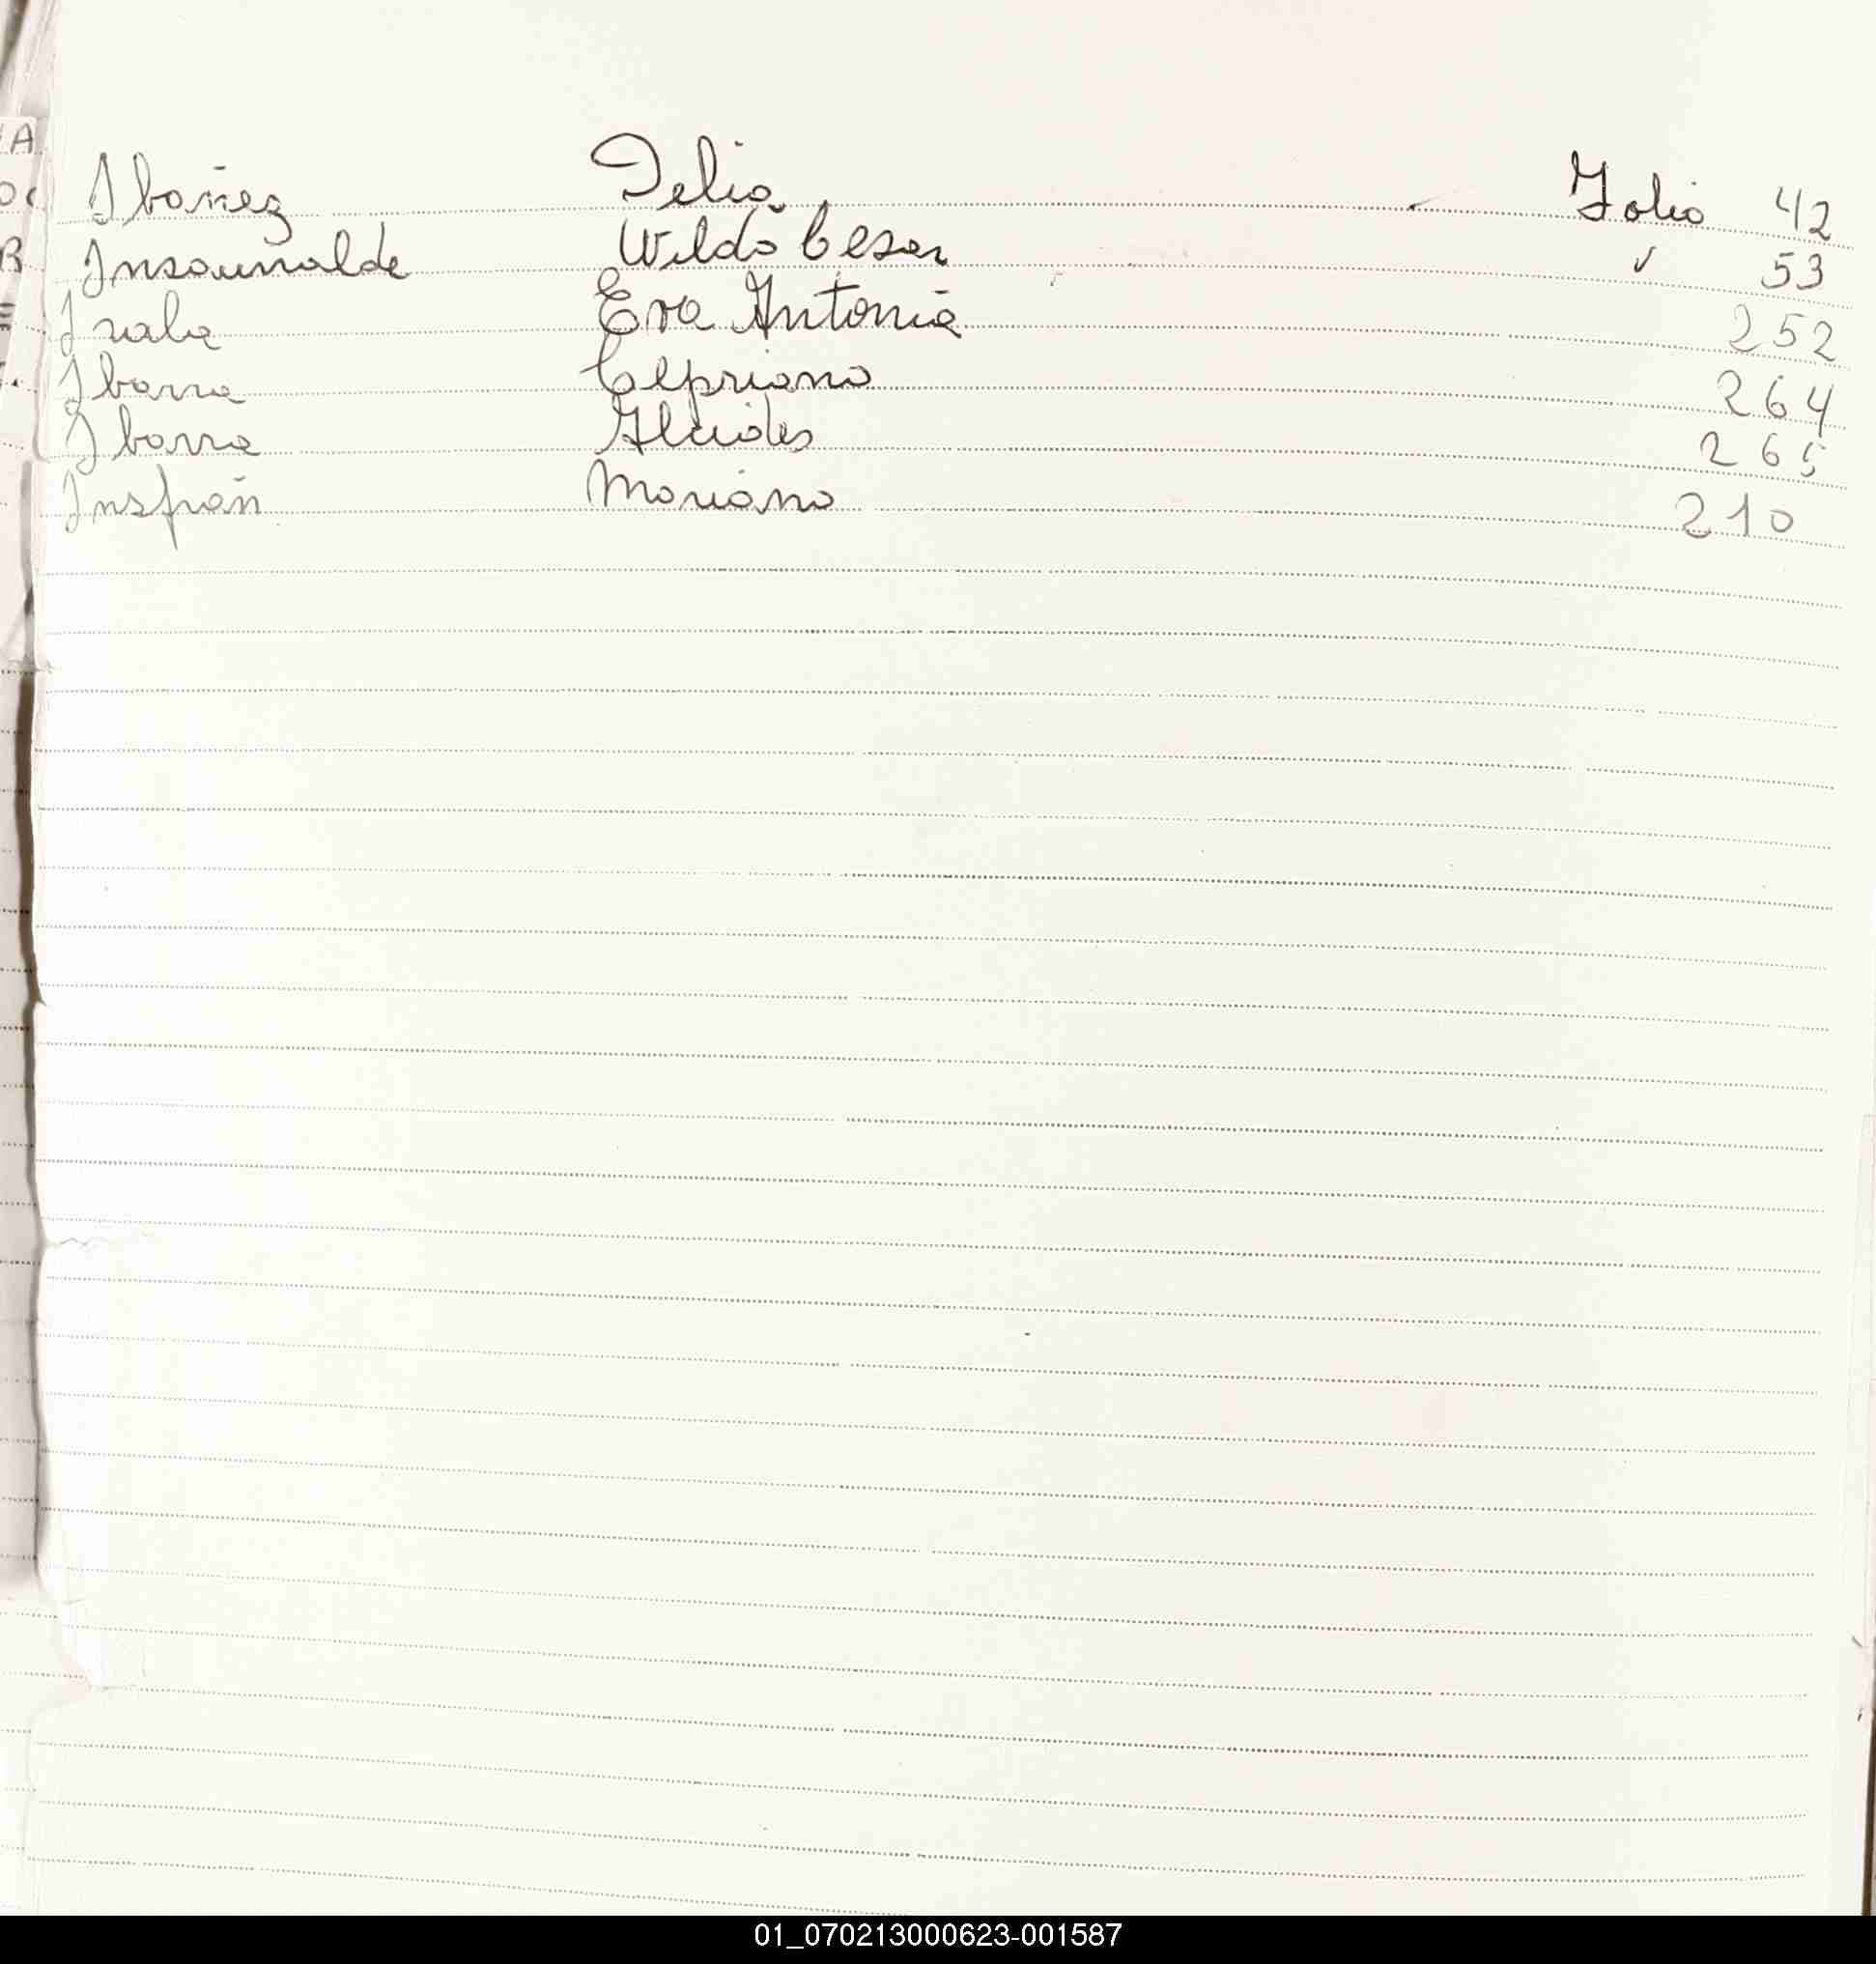 Ibañez Delia Folio 42
Insaurralde Wildo Cesar ✓ 53
Irala Eva Antonia 252
Ibarra Cipriano 264
Ibarra Alcides 265
Insfrán Mariano 210
01_070213000623-001587